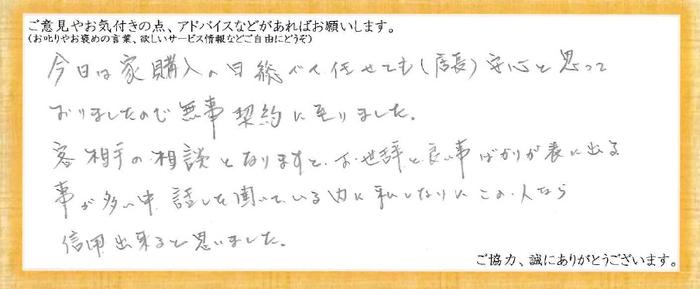 ご意見やお気付きの点、アドバイスなどがあればお願いします。
(お叱りやお褒めの言葉、欲しいサービス情報などご自由にどうぞ)
今日は家購入の日総べて任せても(店長)安心と思って
おりましたので無事契約に至りました。
客相手の相談となりますと、お世辞と良い事ばかりが表に出る
事が多い中、話しを聞いている内に私しなりにこの人なら
信用出来ると思いました。
ご協力、誠にありがとうございます。